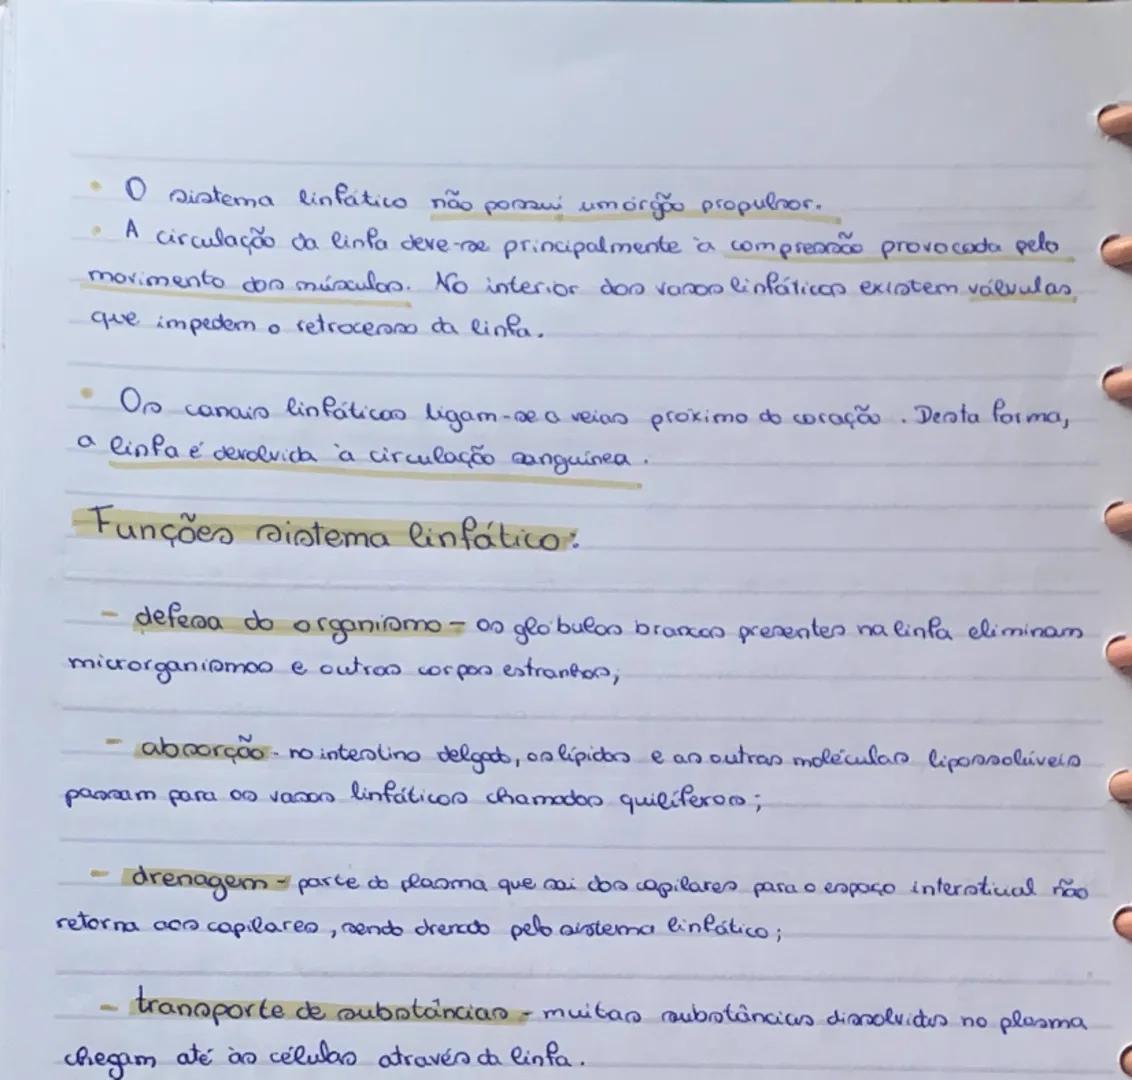 • O sistema linfático não possui um órgão propulsor.
• A circulação da linfa deve-se principalmente à compressão provocada pelo
movimento dos músculos. No interior dos vasos linfáticos existem válvulas,
que impedem o retrocesso da linfa.
• Os canais linfáticos ligam-se a veias próximo do coração. Desta forma,
a linfa é devolvida à circulação sanguínea.
Funções sistema linfático:
- defesa do organismo - os glóbulos brancos presentes na linfa eliminam
microrganismos e outros corpos estranhos;
- absorção - no intestino delgado, os lípidos e as outras moléculas lipossolúveis
passam para os vasos linfáticos chamados quilíferos;
- drenagem - parte do plasma que sai dos capilares para o espaço intersticial não
retorna aos capilares, sendo drenado pelo sistema linfático;
- transporte de substâncias - muitas substâncias dissolvidas no plasma
chegam até às células através da linfa.